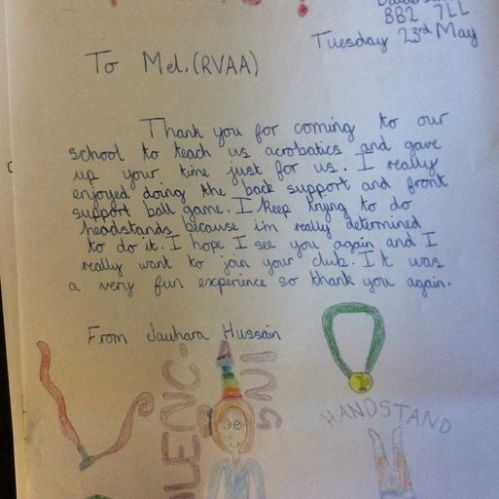 BB2 7LL
Tuesday 23rd May
To Mel.(RVAA)
Thank you for coming to our
school to teach us acrobatics and gave
up your time just for us. I really
enjoyed doing the back support and front
support ball game. I keep trying to do
headstands because i'm really determined
to do it. I hope I see you again and I
really want to join your club. It was
a very fun experience so thank you again.
From Jauhara Hussain
HANDSTAND